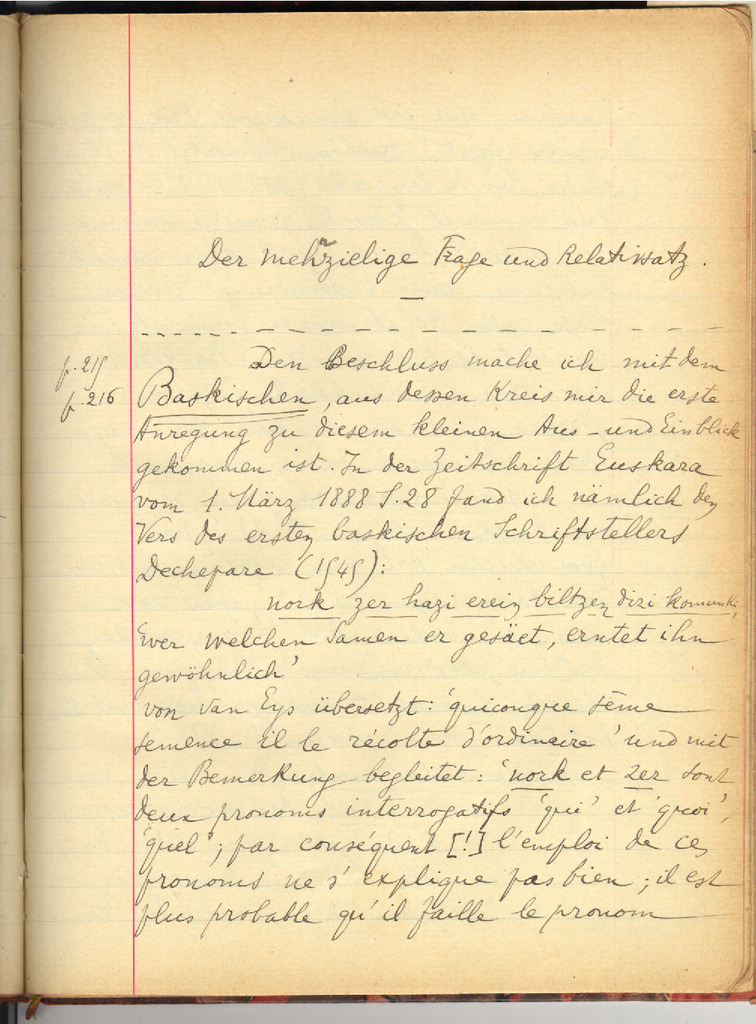 Der mehrzielige Frage und Relativsatz.
p. 215
p. 216
Den Beschluss mache ich mit dem
Baskischen, aus dessen Kreis mir die erste
Anregung zu diesem kleinen Aus- und Einblick
gekommen ist. In der Zeitschrift Euskara
vom 1. März 1888 S. 28 fand ich nämlich den
Vers des ersten baskischen Schriftstellers
Dechepare (1545):
nork zer hazi erein biltzen dizi komunki,
'wer welchen Samen er gesäet, erntet ihn
gewöhnlich'
von Van Eys übersetzt: 'quiconque sême
semence il le récolte d'ordinaire' und mit
der Bemerkung begleitet: 'nork et zer sont
deux pronoms interrogatifs 'qui' et 'quoi',
'quel'; par conséquent [!] l'emploi de ces
pronoms ne s'explique pas bien; il est
plus probable qu'il faille le pronom